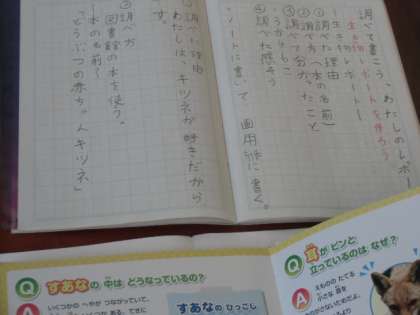 調べて書こう、わたしのレポート
生き物レポートを作ろう
ー生き物レポートー
①調べた理由
②調べ方（本の名前）
③調べて分かったこと
④調べた感そう
ノートに書いて画用紙に書く。
①調べた理由
わたしは、キツネが好きだから
です。
②調べ方
図書館の本を使う。
ー本の名前ー
「どうぶつの赤ちゃんキツネ」
Q すあなの中はどうなっているの?
A いくつかのへやがつながっていて、
すあなのひっこし
Q 耳がピンと
立っているのはなぜ?
A えもののたてる
小さな音を